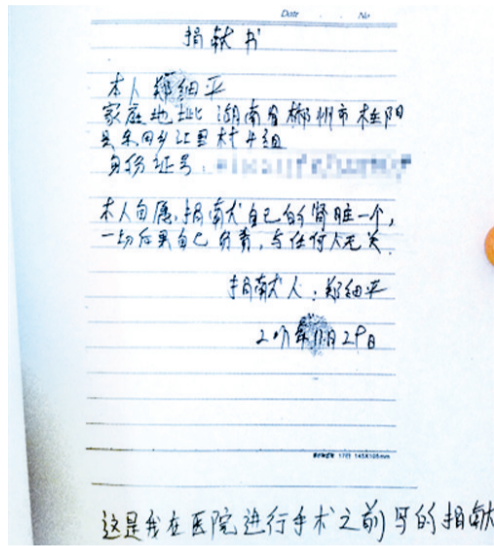 Date No
捐献书
本人郑细平
家庭地址:湖南省郴州市桂阳
县东回乡江里村井组
身份证号:
本人自愿,捐献自己的肾脏一个,
一切后果自己负责,与任何人无关.
捐献人:郑细平
月29日
17行 145X105mm
这是我在医院进行手术之前写的捐献